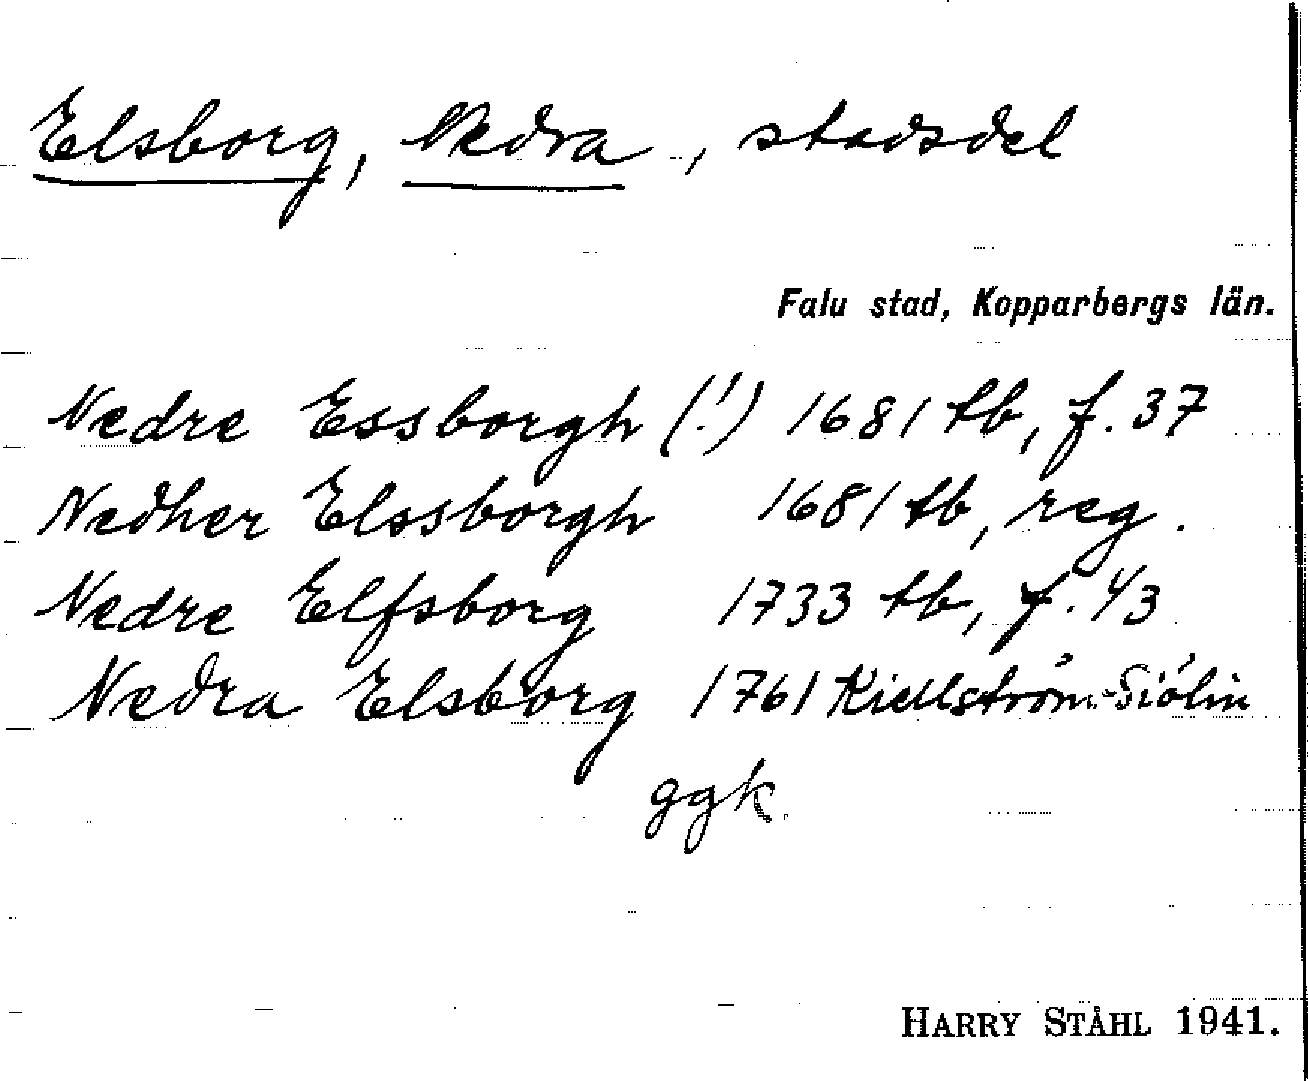 Elsborg, Nedra, stadsdel
Falu stad, Kopparbergs län.
Nedre Essborgh (!) 1681 tb, f. 37
Nedher Elssborgh 1681 tb, reg.
Nedre Elfsborg 1733 tb, f. 43
Nedra Elsborg 1761 Kiellström-Siölin
ggk.
HARRY STÅHL 1941.